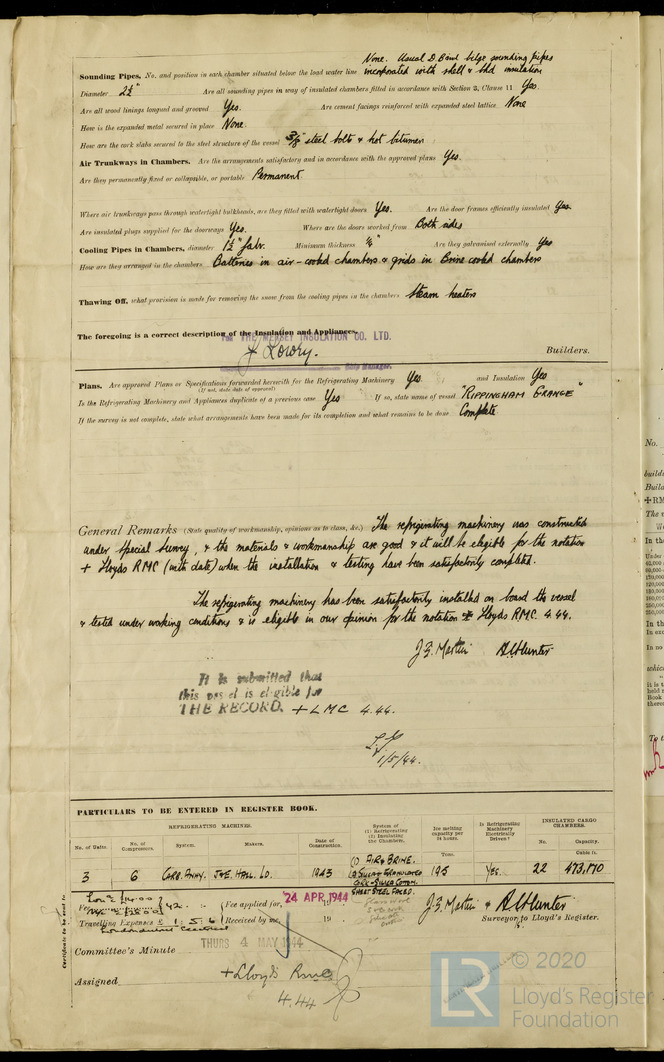 None. Usual D. Bind bilge sounding pipes
Sounding Pipes, No. and position in each chamber situated below the load water line incorporated with shell & bhd insulation
Diameter 2½" Are all sounding pipes in way of insulated chambers fitted in accordance with Section 3, Clause 11 Yes.
Are all wood linings tongued and grooved Yes. Are cement facings reinforced with expanded steel lattice None
How is the expanded metal secured in place None.
How are the cork slabs secured to the steel structure of the vessel 3/8" steel bolts & hot bitumen
Air Trunkways in Chambers. Are the arrangements satisfactory and in accordance with the approved plans Yes.
Are they permanently fixed or collapsible, or portable Permanent
Where air trunkways pass through watertight bulkheads, are they fitted with watertight doors Yes. Are the door frames efficiently insulated Yes.
Are insulated plugs supplied for the doorways Yes. Where are the doors worked from Both sides
Cooling Pipes in Chambers, diameter 1½" Minimum thickness ¼" Are they galvanised externally Yes
How are they arranged in the chambers Batteries in air-cooled chambers & grids in Brine cooled chambers
Thawing Off, what provision is made for removing the snow from the cooling pipes in the chambers Steam heaters
The foregoing is a correct description of the Insulation and Appliances.
For THE MERSEY INSULATION CO. LTD.
J. Lowry. Builders.
Manager.
Plans. Are approved Plans or Specifications forwarded herewith for the Refrigerating Machinery Yes. and Insulation Yes.
(If not, state date of approval)
Is the Refrigerating Machinery and Appliances duplicate of a previous case Yes If so, state name of vessel "RIPPINGHAM GRANGE"
If the survey is not complete, state what arrangements have been made for its completion and what remains to be done. Complete
General Remarks (State quality of workmanship, opinions as to class, &c.) The refrigerating machinery was constructed
under Special Survey, & the materials & workmanship are good & it will be eligible for the notation
+ Lloyds RMC (with date) when the installation & testing have been satisfactorily completed.
The refrigerating machinery has been satisfactorily installed on board the vessel
& tested under working conditions & is eligible in our opinion for the notation + Lloyds RMC. 4.44.
It is submitted that
this vessel is eligible for
THE RECORD. + LMC 4.44.
1/5/44.
PARTICULARS TO BE ENTERED IN REGISTER BOOK.
REFRIGERATING MACHINES.
No. of Units. No. of Compressors. System. Makers. Date of Construction. System of (1) Refrigerating (2) Insulating the Chambers. Ice melting capacity per 24 hours. Tons. Is Refrigerating Machinery Electrically Driven? INSULATED CARGO CHAMBERS. No. Capacity. Cubic ft.
3 6 CARB. ANHY. J&E. HALL. LD. 1943 (1) AIR & BRINE. 195 YES. 22 473,170
SHEET STEEL FACED.
Fee applied for, 24 APR 1944
Travelling Expenses £ 1 : 5 : 6 Received by me, 19
Surveyor to Lloyd's Register.
Committee's Minute THURS 4 MAY 1944
Assigned + Lloyds RMC
4.44
Certificate to be sent to
© 2020
LR Lloyd's Register
Foundation